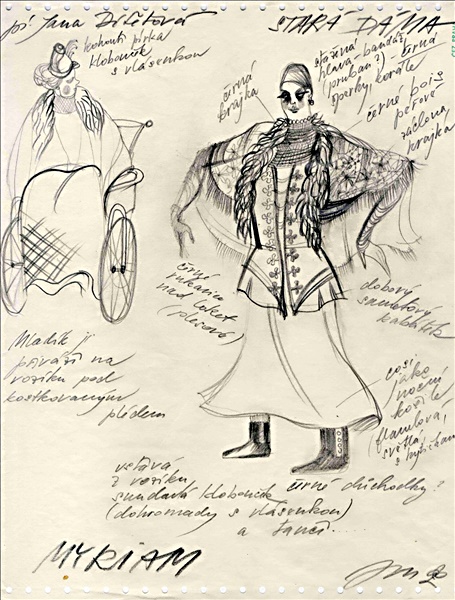 pí Jana Drčetová
STARÁ DÁMA
kohoutí pírka
klobouček
s vlásenkou
černá
krajka
stažená
hlava - bandáž
(pruban?) černá
šperky, korále
černé
péřové
záclona,
krajka
černé
rukavice
nad loket
(plesové)
dobový
sametový
kabátek
Mladík ji
přiváží na
vozíku pod
kostkovaným
plédem
cosi
jako
noční
košile
flanelová,
světlá,
vstává
z vozíku
sundavá klobouček
(dohromady s vlásenkou)
a tančí...
černé důchodky?
MYRIAM